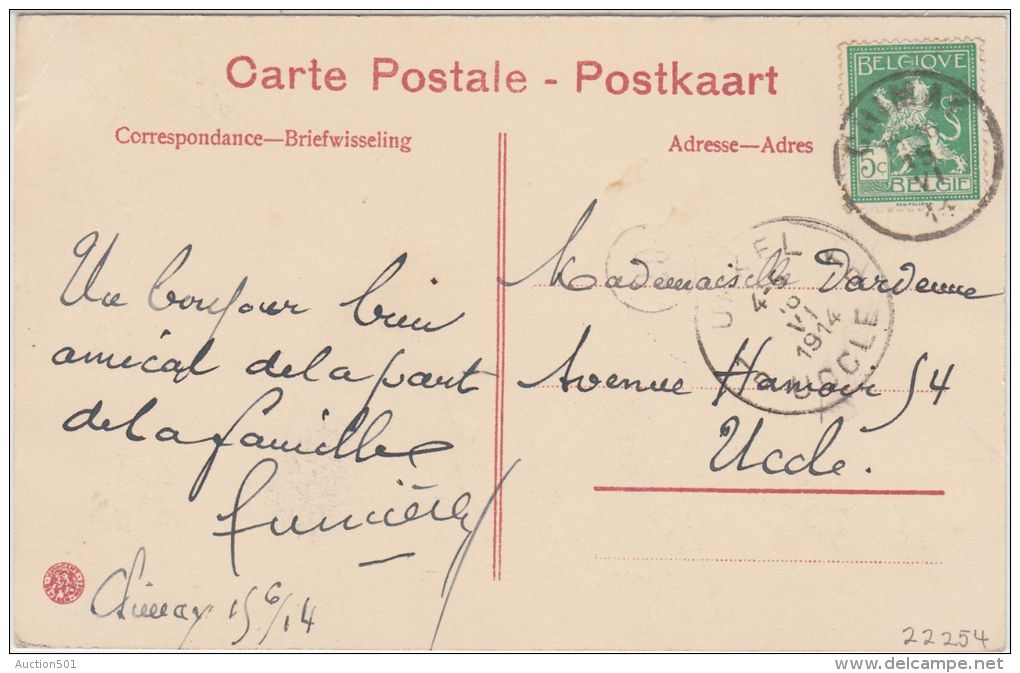 Carte Postale - Postkaart
Correspondance—Briefwisseling
Adresse—Adres
BELGIQVE
5c
BELGIE
CHIMAY
15
VI
14
UKKEL
4-5
VI
1914
UCCLE
Un bonjour bien
amical de la part
de la famille
Chimay 15/6/14
Mademoiselle Dardenne
Avenue Hamoir 54
Uccle.
22254
Auction501
delcampe.net